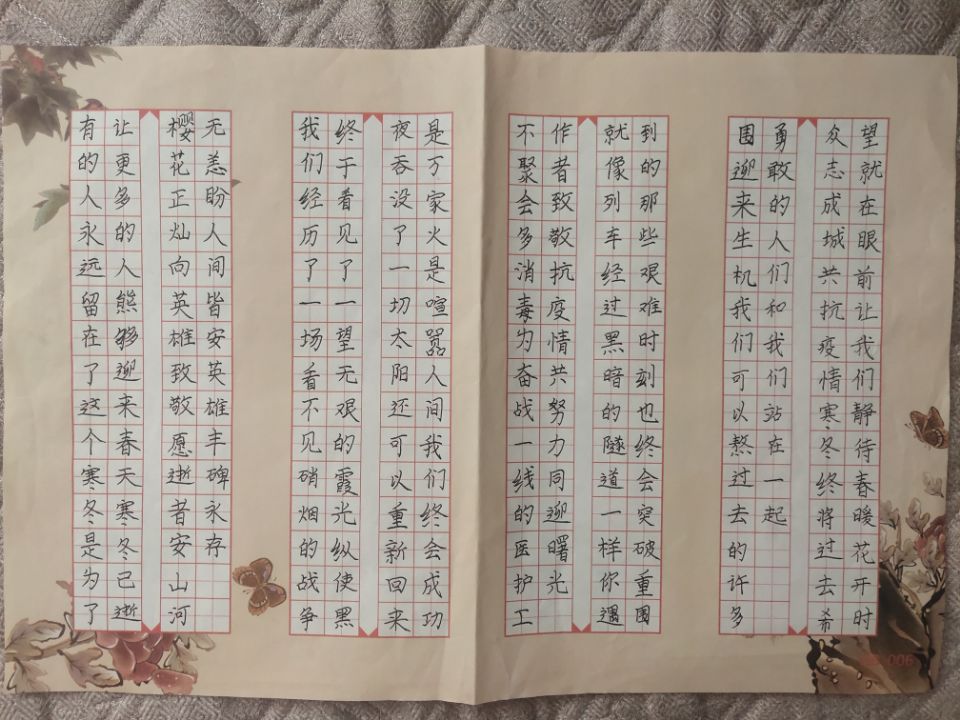 有的人永远留在了这个寒冬是为了
让更多的人熊够迎来春天寒冬已逝
樱花正灿向英雄致敬愿逝者安山河
无恙盼人间皆安英雄丰碑永存
我们经历了一场看不见硝烟的战争
终于看见了一望无艰的霞光纵使黑
夜吞没了一切太阳还可以重新回来
是万家火是喧嚣人间我们终会成功
不聚会多消毒为奋战一线的医护工
作者致敬抗疫情共努力同迎曙光
就像列车经过黑暗的隧道一样你遇
到的那些艰难时刻也终会突破重围
围迎来生机我们可以熬过去的许多
勇敢的人们和我们站在一起
众志成城共抗疫情寒冬终将过去希
望就在眼前让我们静待春暖花开时
006